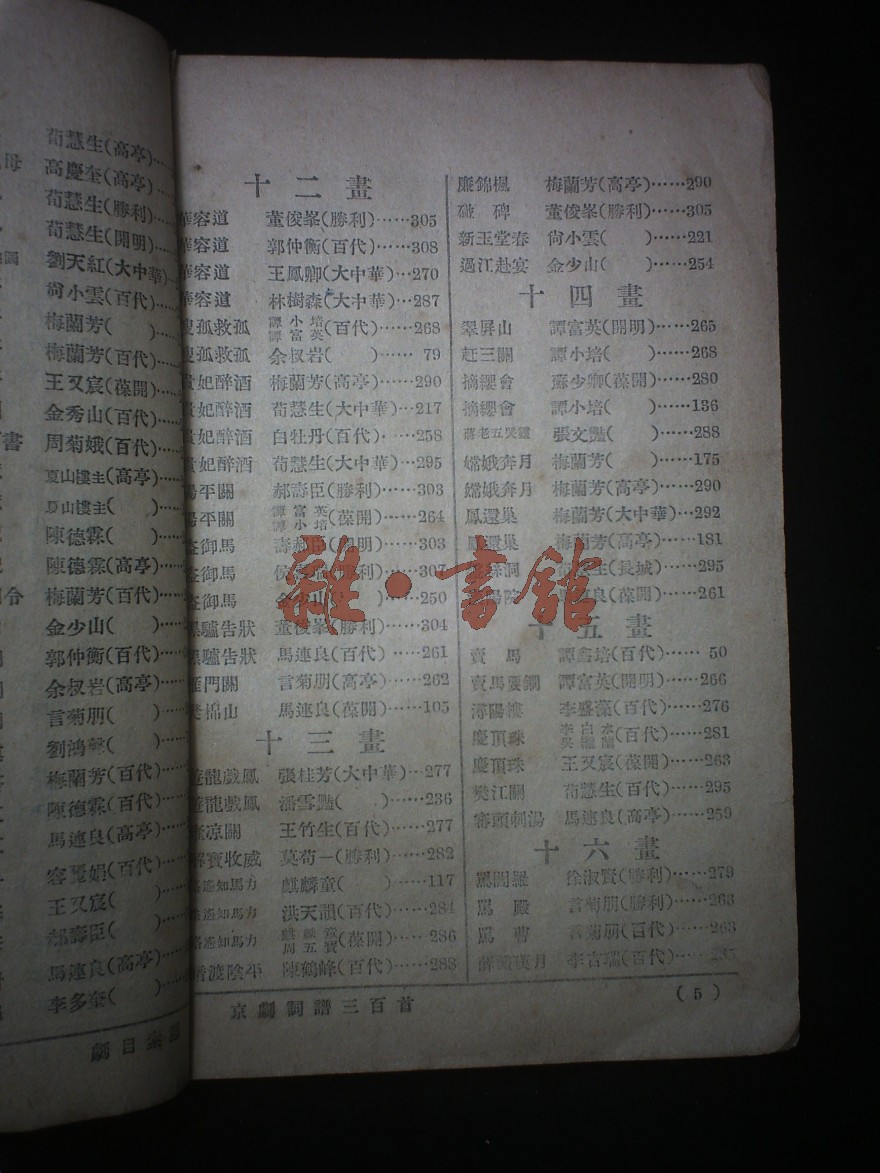 荀慧生(高亭)
母 高慶奎(高亭)
荀慧生(勝利)
荀慧生(開明)
劉天紅(大中華)
尙小雲(百代)
梅蘭芳( )
梅蘭芳(百代)
王又宸(蓓開)
金秀山(百代)
書 周菊娥(百代)
夏山樓主(高亭)
夏山樓主( )
陳德霖( )
陳德霖(高亭)
令 梅蘭芳(百代)
金少山( )
郭仲衡(百代)
余叔岩(高亭)
言菊朋( )
劉鴻聲( )
梅蘭芳(百代)
陳德霖(百代)
馬連良(高亭)
(百代)
王又宸( )
郝壽臣( )
馬連良(高亭)
李多奎( )
劇目
十二畫
華容道 董俊峯(勝利)……305
華容道 郭仲衡(百代)……308
華容道 王鳳卿(大中華)…270
華容道 林樹森(大中華)…287
搜孤救孤 譚小培 譚富英(百代)……268
搜孤救孤 余叔岩( )…… 79
貴妃醉酒 梅蘭芳(高亭)……290
貴妃醉酒 荀慧生(大中華)…217
貴妃醉酒 白牡丹(百代)……258
貴妃醉酒 荀慧生(大中華)…295
陽平關 郝壽臣(勝利)……303
陽平關 譚富英 譚小培(蓓開)……264
盜御馬 明)……303
盜御馬 勝利)……307
盜御馬 金少山 ……250
黑驢告狀 董俊峯(勝利)……304
黑驢告狀 馬連良(百代)……261
雁門關 言菊朋(高亭)……262
焚棉山 馬連良(蓓開)……105
十三畫
遊龍戲鳳 張桂芳(大中華)…277
遊龍戲鳳 潘雪豔( )……236
凉關 王竹生(百代)……277
寶收威 莫荀一(勝利)……282
路遙知馬力 麒麟童( )……117
路遙知馬力 洪天韻(百代)……284
路遙知馬力 麒麟童 周五寶(蓓開)……286
暗渡陰平 陳鶴峰(百代)……288
廉錦楓 梅蘭芳(高亭)……290
碰碑 董俊峯(勝利)……305
新玉堂春 尙小雲( )……221
過江赴宴 金少山( )……254
十四畫
翠屏山 譚富英(開明)……265
趕三關 譚小培( )……268
摘纓會 蘇少卿(蓓開)……280
摘纓會 譚小培( )……136
蔣老五哭靈 張文豔( )……288
嫦娥奔月 梅蘭芳( )……175
嫦娥奔月 梅蘭芳(高亭)……290
鳳還巢 梅蘭芳(大中華)…292
鳳還巢 梅蘭芳(高亭)……181
絲洞 生(長城)……295
院 良(蓓開)……261
十五畫
賣馬 譚(百代)…… 50
賣馬耍鐧 譚富英(開明)……266
潯陽樓 李盛藻(百代)……276
慶頂珠 李白水 (百代)……281
慶頂珠 王又宸(蓓開)……263
樊江關 荀慧生(百代)……295
審頭刺湯 馬連良(高亭)……259
十六畫
罵閻羅 徐淑賢(勝利)……279
罵殿 言菊朋(勝利)……263
罵曹 言菊朋(百代)……263
月 李吉瑞(百代)……
京劇詞譜三百首
(5)
雜·書館